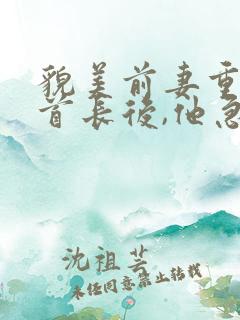 貌美前妻重
首长後,他急
沈祖芸
未经同意禁止转载